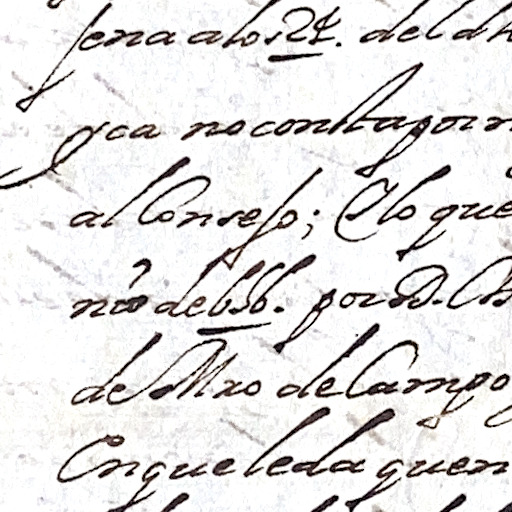 sena a los 24. del d
yca no consta por
al Consejo; Y lo que
nio de V.S. por D.
de Mro de Campo
En que le da quen